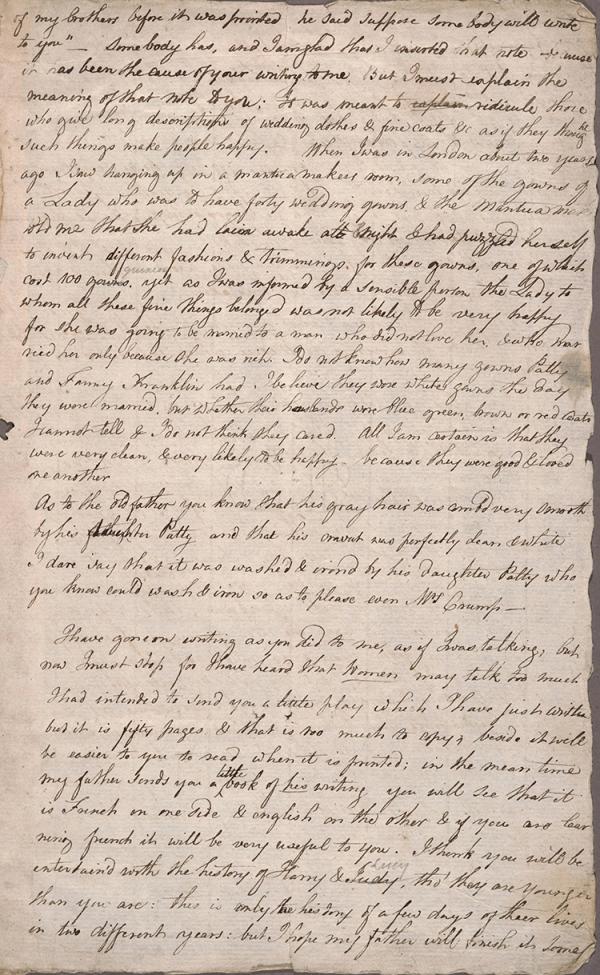 of my brothers before it was printed he said suppose somebody will write
to you" — Somebody has, and I am glad that I inserted that note
it has been the cause of your writing to me But I must explain the
meaning of that note to you: It was meant to explain ridicule those
who give long descriptions of wedding clothes & fine coats &c as if they thought
such things make people happy. When I was in London about two years
ago I saw hanging up in a mantua makers room, some of the gowns of
a Lady who was to have forty wedding gowns & the Mantua
told me that she had lain awake all Night & had puzzled herself
to invent different fashions & trimmings for these gowns, one of which
cost 100 guineas, yet as I was informed by a sensible person the Lady to
whom all these fine things belonged was not likely to be very happy
for she was going to be married to a man who did not love her, & who mar
ried her only because she was rich. I do not know how many gowns Patty
and Fanny Franklin had I believe they wore white gowns the day
they were married, but whether their husbands wore blue green, brown or red coats
I cannot tell & I do not think they cared. All I am certain is that they
were very clean, & very likely to be happy – because they were good & loved
one another
As to the old father you know that his gray hair was comb'd very smooth
by his daughter Patty and that his cravat was perfectly clean & white
I dare say that it was washed & iron'd by his Daughter Patty who
you know could wash & iron so as to please even Mrs Crump —
I have gone on writing as you did to me, as if I was talking, but
now I must stop for I have heard that Women may talk too much
I had intended to send you a little play which I have just written
but it is fifty pages & that is too much to copy; beside it will
be easier to you to read when it is printed; in the mean time
my father sends you a little book of his writing you will see that it
is French on one side & english on the other & if you are lear
ning french it will be very useful to you. I think you will be
entertain'd with the history of Harry & Lucy, tho' they are younger
than you are: this is only the history of a few days of their lives
in two different years: but I hope my father will finish it some